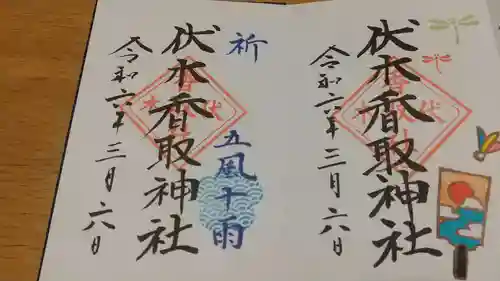 伏木香取神社
令和六年三月六日
伏木香取神社
祈
五風十雨
令和六年三月六日